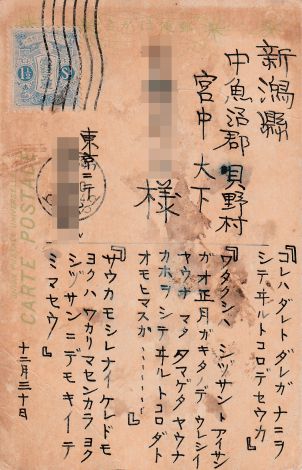 新潟縣
中魚沼郡貝野村
宮中 大下
様
東京ニテ
『コレハダレトダレガナニヲ
シテヰルトコロデセウカ』
『ワタクシハ シヅサントアイサン
ガオ正月ガキタノデウレシイ
ヤウナ マタタマゲタヤウナ
カホヲシテヰルトコロダト
オモヒマスガ…………』
『サウカモシレナイケレドモ
ヨクハワカリマセンカラヨク
シヅサンニデモキイテ
ミマセウ』
十二月三十日
CARTE POSTALE